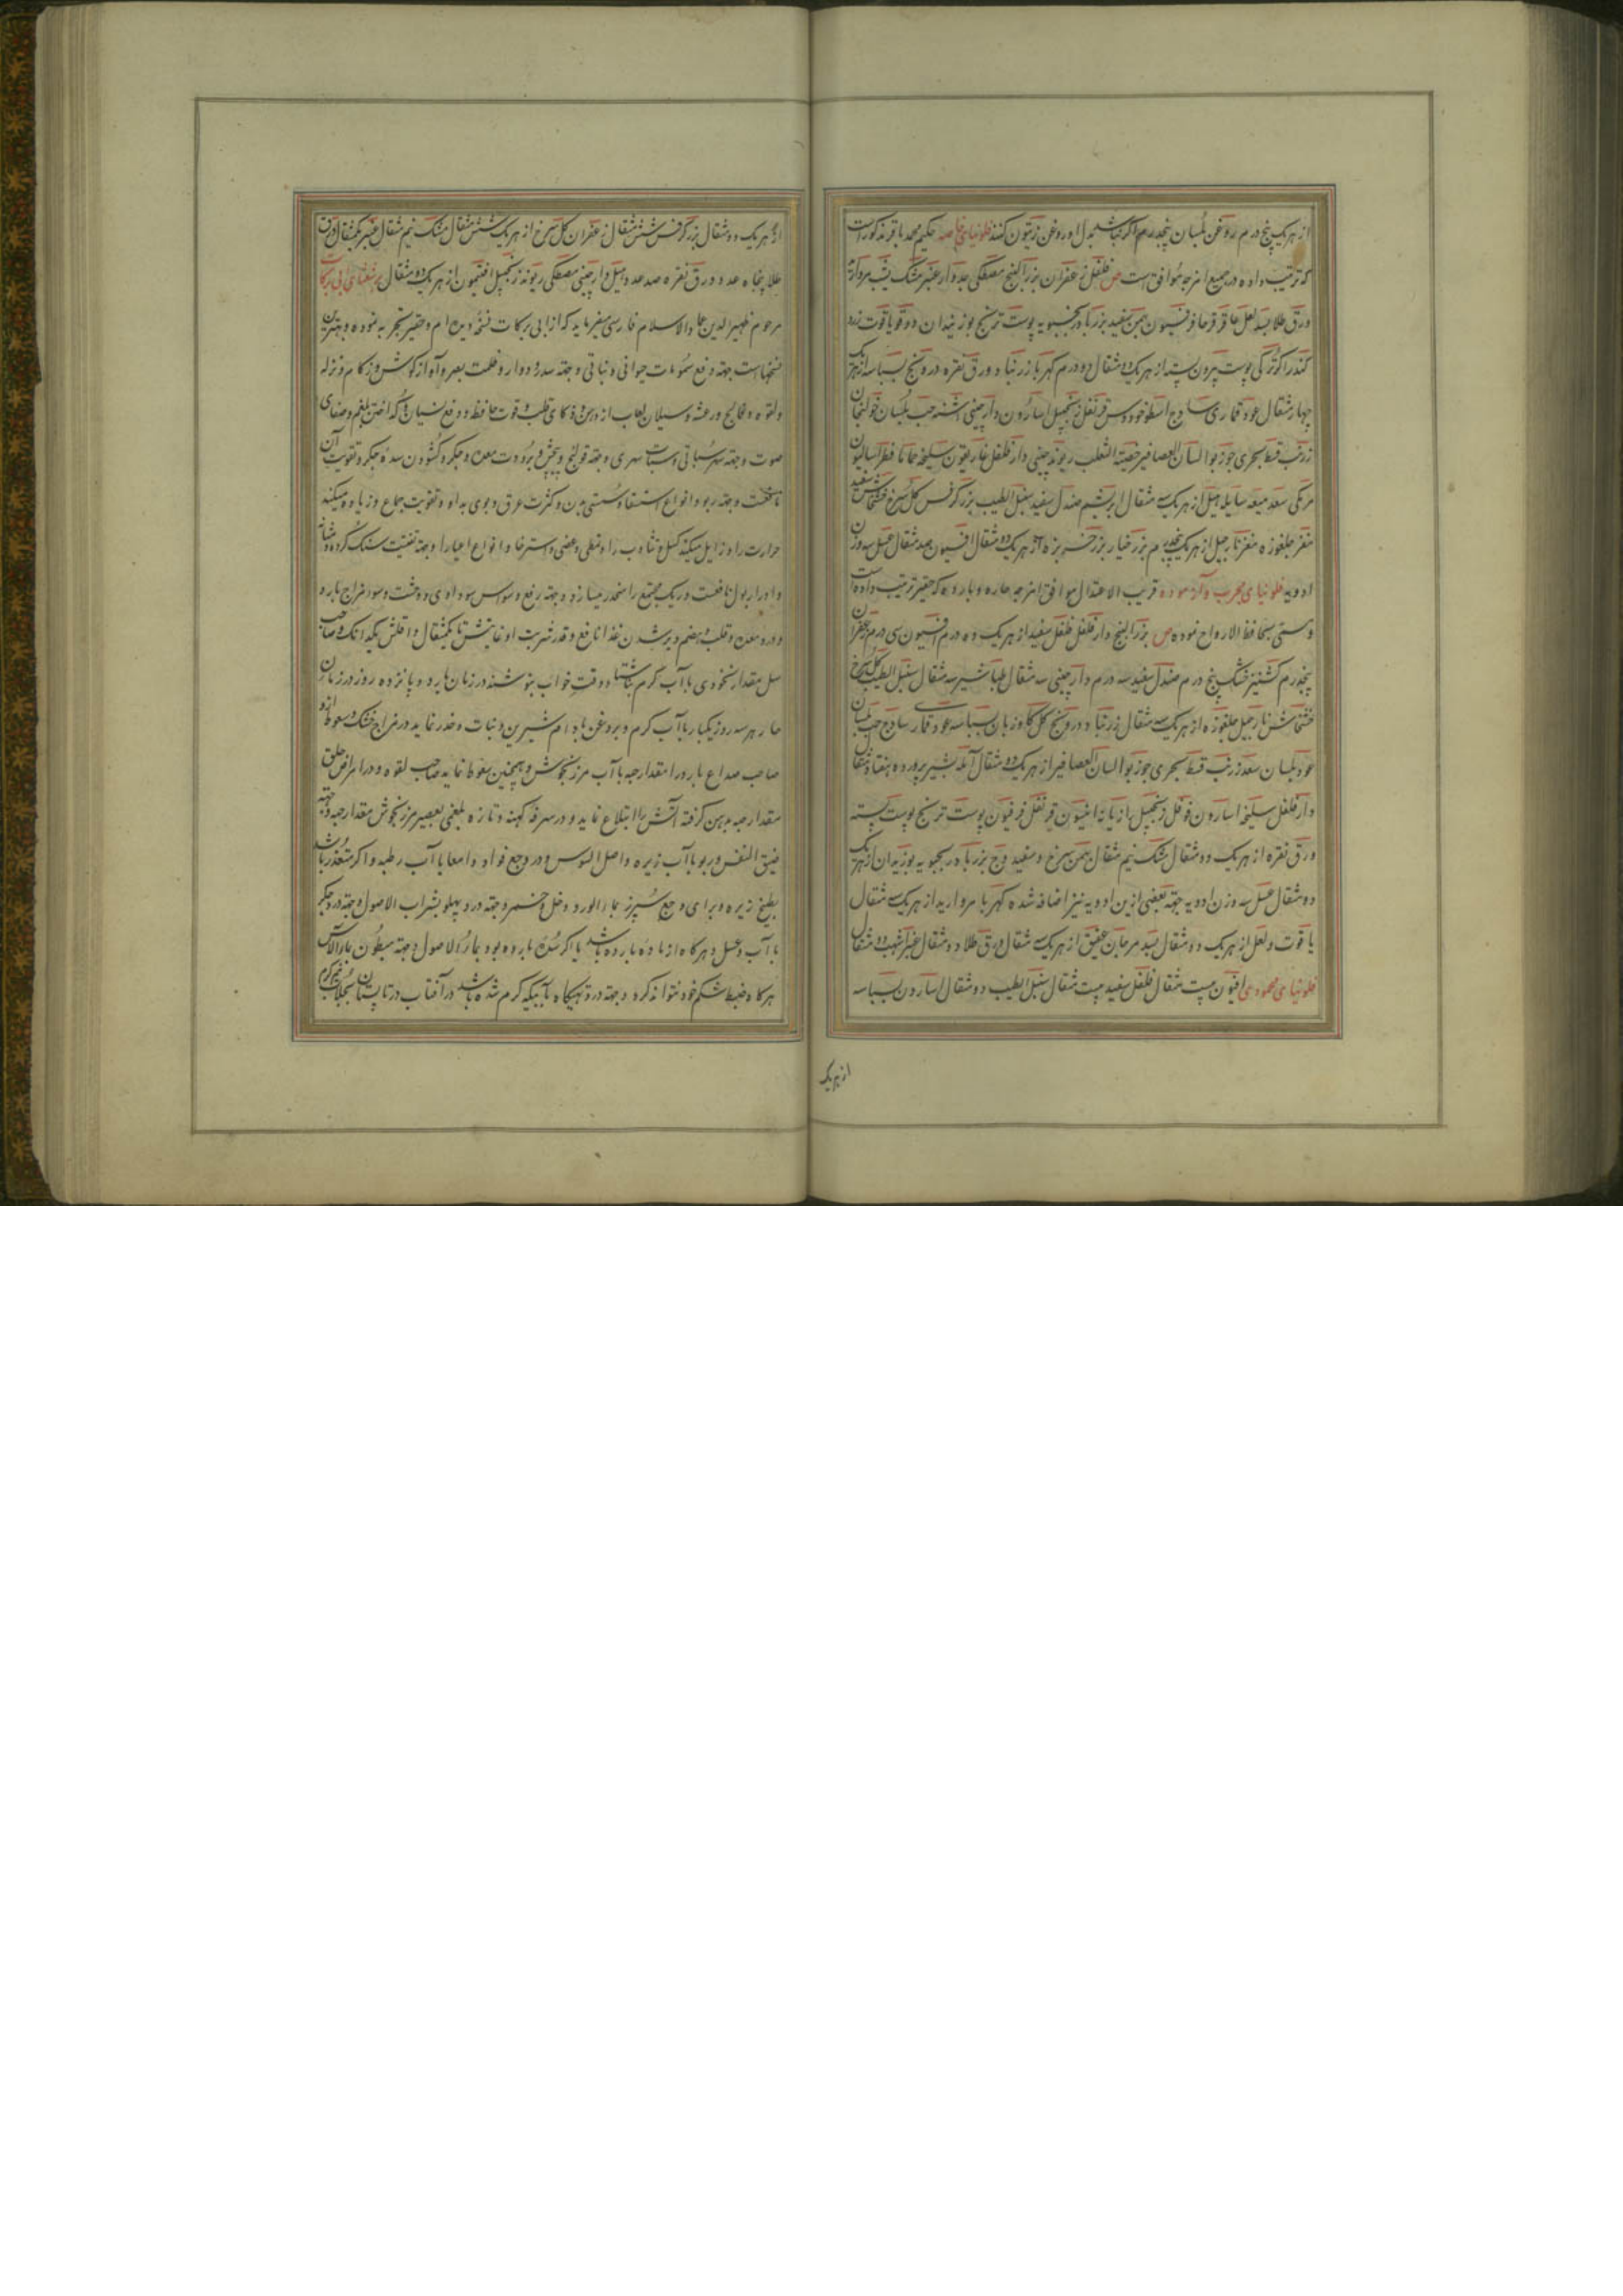 از هر یک پنج درم روغن بلسان پنجدرم اگر نباشد بدل او روغن زیتون کنند فلونیای خاصه حکیم محمد باقر مذکور است
که ترتیب داده در جمیع امزجه موافق است ص فلفل زعفران بزرالبنج مصطکی جدوار عنبر مشک یشب مروارید
ورق طلا بسد لعل عاقرقرحا فرفیون بهمن سفید بزر بادرنجبویه پوست ترنج بوزیدان دوقو یاقوت زرد
کندر اکر ترکی پوست بیرون پسته از هر یک دو مثقال دو درم کهربا زرنباد ورق نقره درونج بسباسه از هر یک
چهار مثقال عود قماری ساذج اسطوخودوس قرنفل زنجبیل اسارون دارچینی اشنه حب بلسان خولنجان
زرنب قسط بحری جوزبوا لسان العصافیر خصیة الثعلب ریوند چینی دارفلفل غاریقون سلیخه حماما فطراسالیون
مر مکی سعد میعه سایله هیل از هر یک سه مثقال ابریشم صندل سفید سنبل الطیب بزر کرفس گل سرخ خشخاش سفید
مغز چلغوزه مغز نارجیل از هر یک پنجدرم بزر خیار بزر خربزه از هر یک ده مثقال افیون صد مثقال عسل سه وزن
ادویه فلونیای مجرب و آزموده قریب الاعتدال موافق امزجه حاره و بارده که حقیر ترتیب داده است
و مسمی بحافظ الارواح نموده ص بزرالبنج دارفلفل فلفل سفید از هر یک ده درم افیون سی درم زعفران
پنجدرم کشنیز خشک پنج درم صندل سفید سه درم دارچینی سه مثقال طباشیر سه مثقال سنبل الطیب گل سرخ
خشخاش نارجیل چلغوزه از هر یک سه مثقال زرنباد درونج گل گاوزبان بسباسه عود قماری ساذج حب بلسان
عود بلسان سعد زرنب قسط بحری جوزبوا لسان العصافیر از هر یک دو مثقال آمله بشیر پرورده هفتاد مثقال
دارفلفل سلیخه اسارون فوفل زنجبیل رازیانه انیسون قرنفل فرفیون پوست ترنج پوست پسته
ورق نقره از هر یک دو مثقال مشک نیم مثقال بهمن سرخ و سفید وج بزر بادرنجبویه بوزیدان از هر یک
دو مثقال عسل سه وزن ادویه جهة بعضی ازین ادویه نیز اضافه شده کهربا مروارید از هر یک سه مثقال
یاقوت و لعل از هر یک دو مثقال بسد مرجان عقیق از هر یک سه مثقال ورق طلا دو مثقال عنبر اشهب دو مثقال
فلونیای محمودی افیون بیست مثقال فلفل سفید بیست مثقال سنبل الطیب دو مثقال اسارون بسباسه
از هر یک
از هر یک دو مثقال بزر کرفس شش مثقال زعفران گل سرخ از هر یک شش مثقال مشک نیم مثقال عنبر یکمثقال ورق
طلا پنجاه عدد ورق نقره صد عدد هیل دارچینی مصطکی ریوند زنجبیل افتیمون از هر یک ده مثقال برشعثای ابی برکات
مرحوم ظهیر الدین عماد الاسلام فارسی میفرماید که از ابی برکات نسخه دیده ام و حقیر تجربه نموده و بهترین
نسخهاست جهة دفع سموم حیوانی و نباتی و جهة سدر و دوار و ظلمت بصر و آواز گوش و زکام و نزله
و لقوه و فالج و رعشه و سیلان لعاب از دهن و ذکای قلب و قوت حافظه و دفع نسیان و گداختن بلغم و صفای
صوت و جهة سهر سباتی و سبات سهری و جهة قولنج و پیچش و برودت معده و جگر و گشودن سده جگر و تقویت آن
نافعست و جهة ربو و انواع استسقا و سستی بدن و کثرت عرق و بوی بد او و تقویت جماع و زیاده میکند
حرارت را و زایل میکند کسل و تثاوب را و تمطی و عضی و استرخا و انواع اعیا را و جهة تفتیت سنگ گرده و مثانه
و ادرار بول نافعست و ریک مجتمع را منحدر میسازد و جهة رفع وسواس سوداوی و وحشت و سوء مزاج بارد
و درد معده و قلب و هضم و بر شدن غذا نافع و قدر شربت او غایتش تا یکمثقال و اقلش یکدانک و صاحب
سل مقدار نخودی با آب گرم ناشتا و وقت خواب بنوشند در زمان بارد و پانزده روز در زمان
حار هر سه روز یکبار با آب گرم و بروغن بادام شیرین و نبات و حذر نماید در مزاج خشک و سعوط ازو
صاحب صداع بارد را مقدار حبه با آب مرزنجوش و همچنین سعوط نماید صاحب لقوه و در امراض حلق
مقدار حبه بدهن گرفته آبش را ابتلاع نماید و در سرفه کهنه و تازه بلغمی بعصیر مرزنجوش مقدار حبه و جهة
ضیق النفس و ربو با آب زیره و اصل السوس و در وجع فواد و امعا با آب رطبه و اگر متعذر باشد
بطبیخ زیره و برای وجع سپرز بماء الورد و خل و خمر و جهة درد پهلو بشراب الاصول و جهة درد جگر
با آب و عسل و هرگاه از ماده بارده باشد یا اگر سده بارده بود بماء الاصول و جهة مبطون بماء الآس
هرگاه ضبط شکم خود نتواند کرد و جهة درد تهیگاه بآبیکه گرم شده باشد در آفتاب در تابستان بجلاب نیم گرم